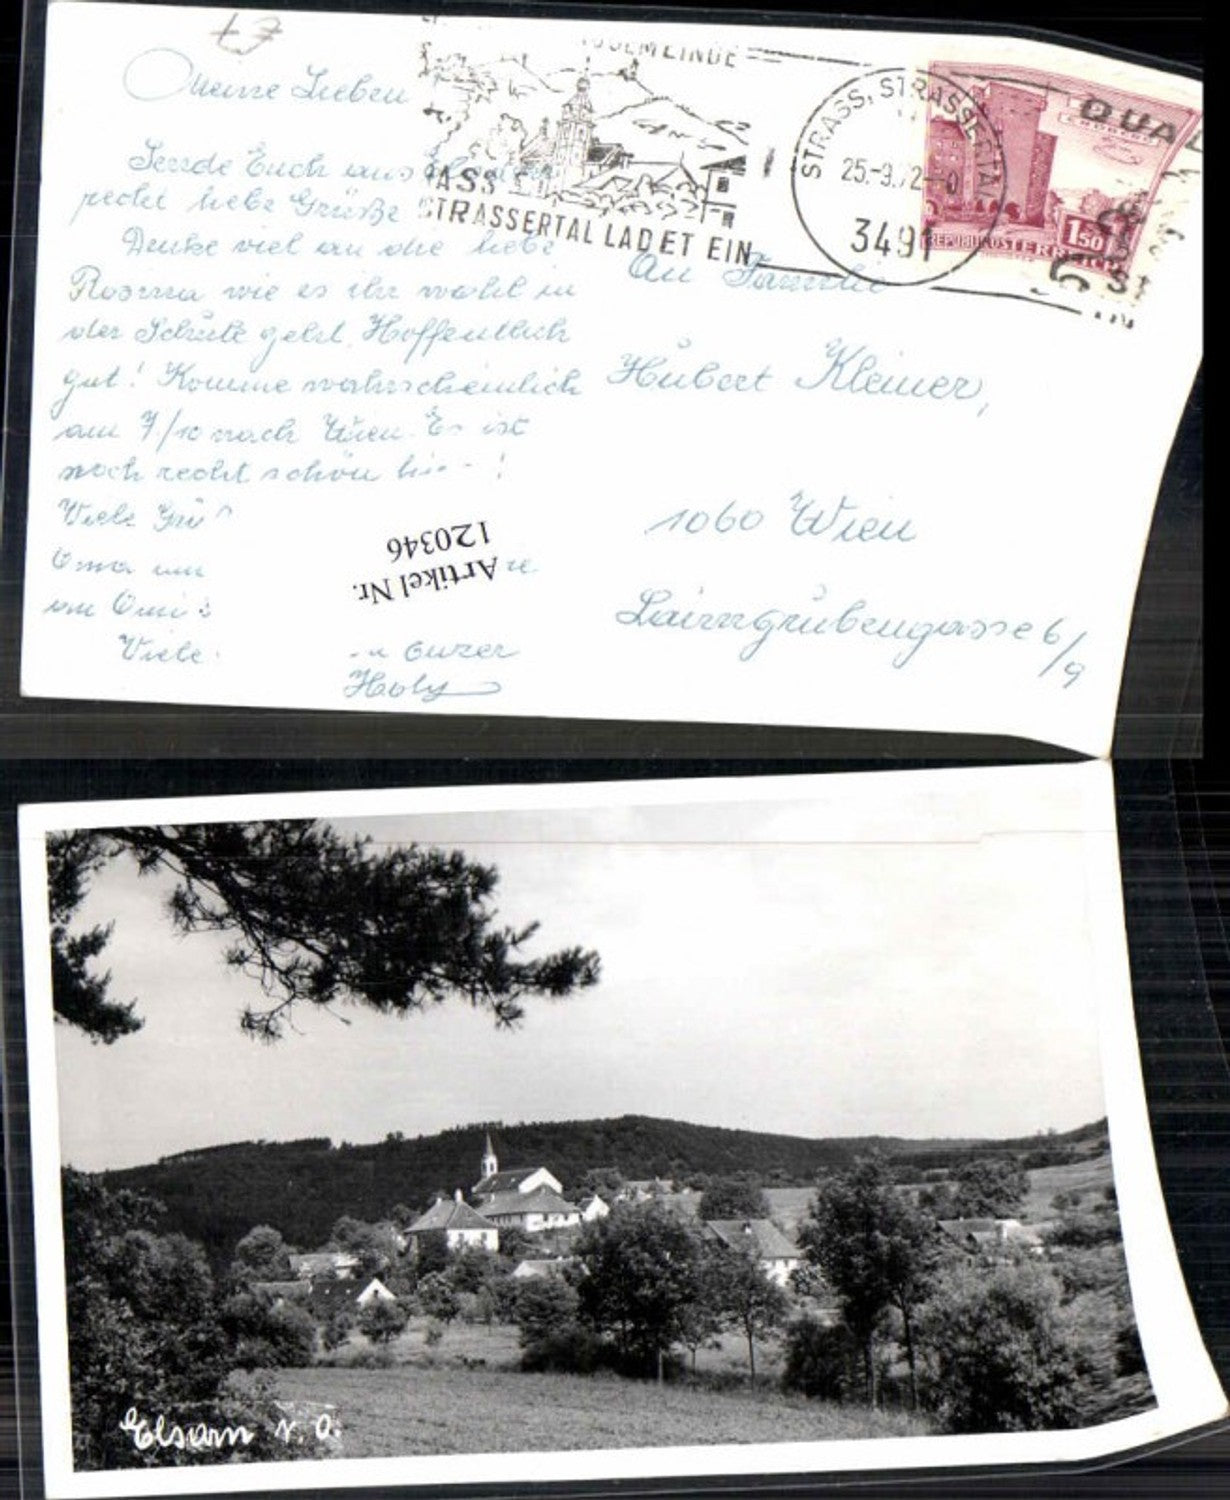 Meine Lieben
Sende Euch aus
recht liebe Grüße
Denke viel an die liebe
Rosina wie es ihr wohl in
der Schule geht. Hoffentlich
gut! Komme wahrscheinlich
am 7/10 nach Wien. Es ist
noch recht schön hie
Viele Grü
Oma
an Omi
Viele
Eurer
STRASSERTAL LADET EIN
STRASS, STRASSERTAL
25.-9.72-
3491
QUAL
1.50
REPUBLIK ÖSTERREICH
An Familie
Hubert Kleiner,
1060 Wien
Laimgrubengasse 6/9
Artikel Nr.
120346
Elsarn N.Ö.